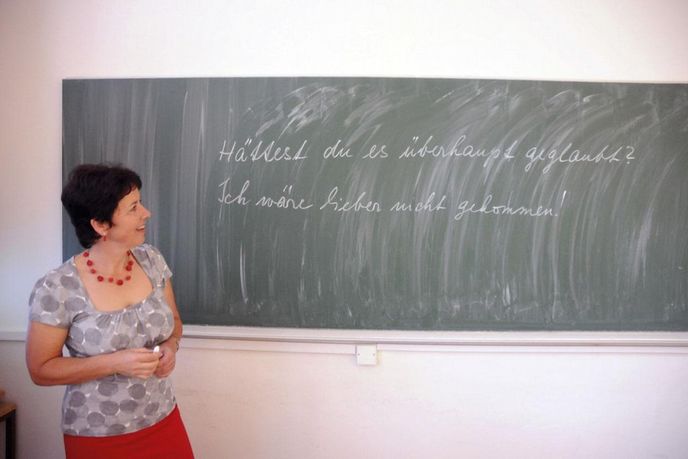 Hättest du es überhaupt geglaubt?
Ich wäre lieber nicht gekommen!